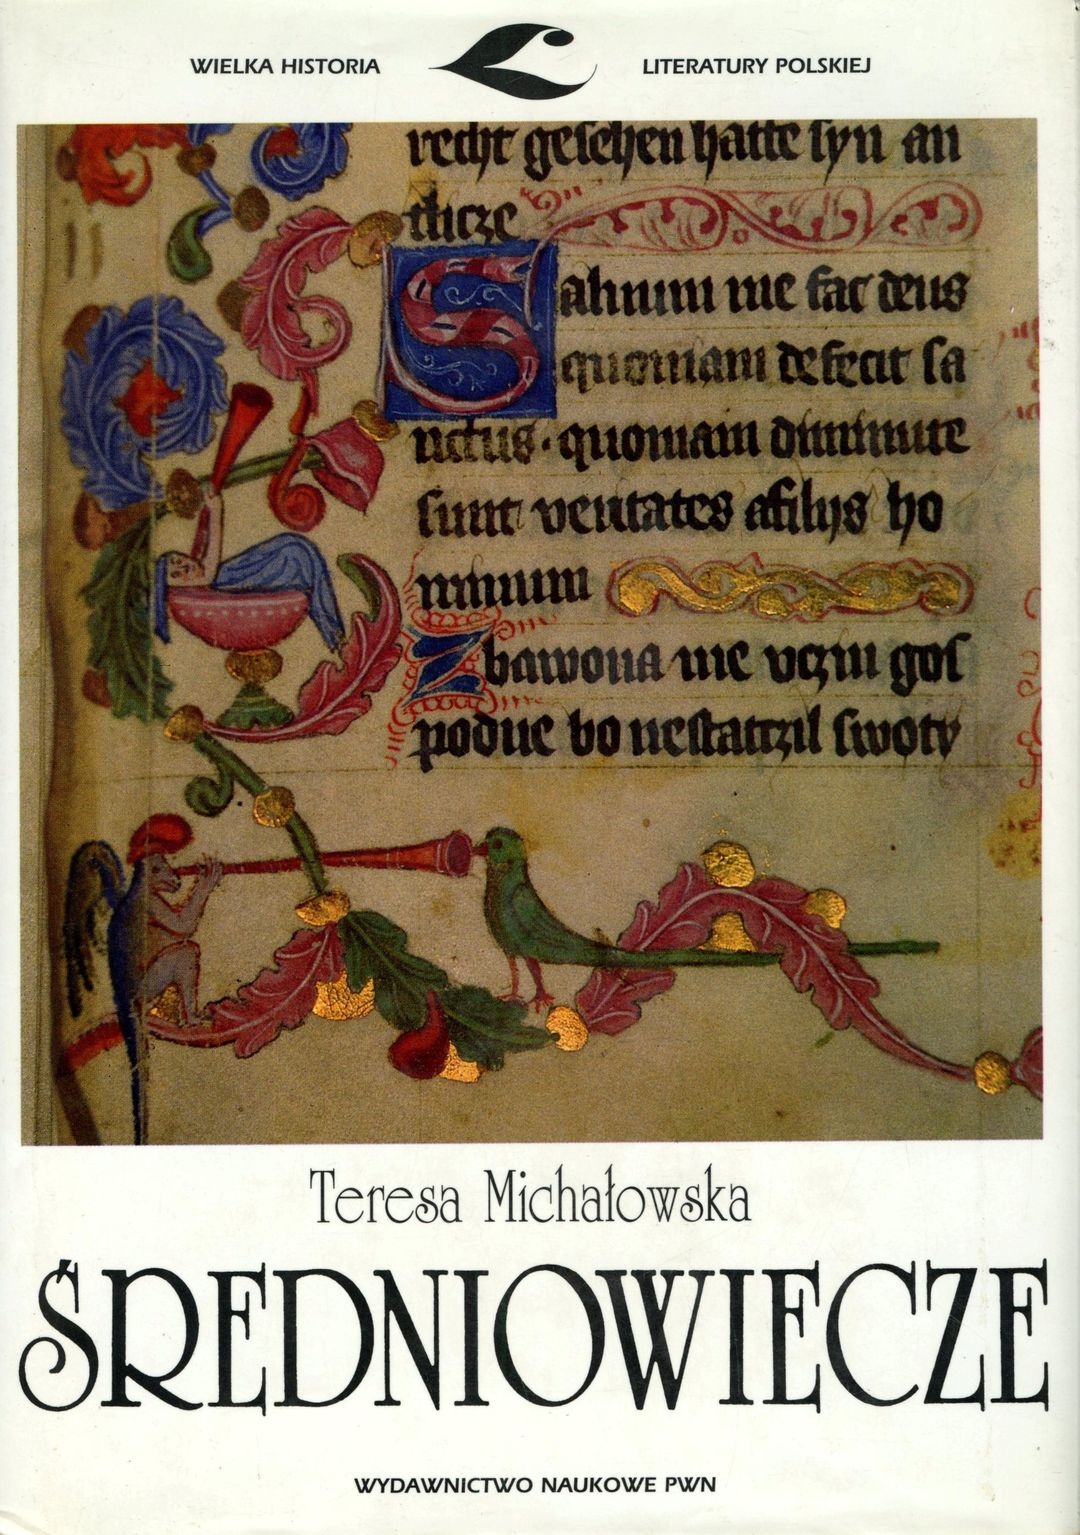 WIELKA HISTORIA LITERATURY POLSKIEJ
recht gesehen hatte syn an
tlicze
Salvum me fac deus
quoniam defecit sa
nctus · quoniam diminute
sunt veritates afilijs ho
minum
Zbawona me vczin gos
podne bo nestatczil swoty
Teresa Michałowska
ŚREDNIOWIECZE
WYDAWNICTWO NAUKOWE PWN